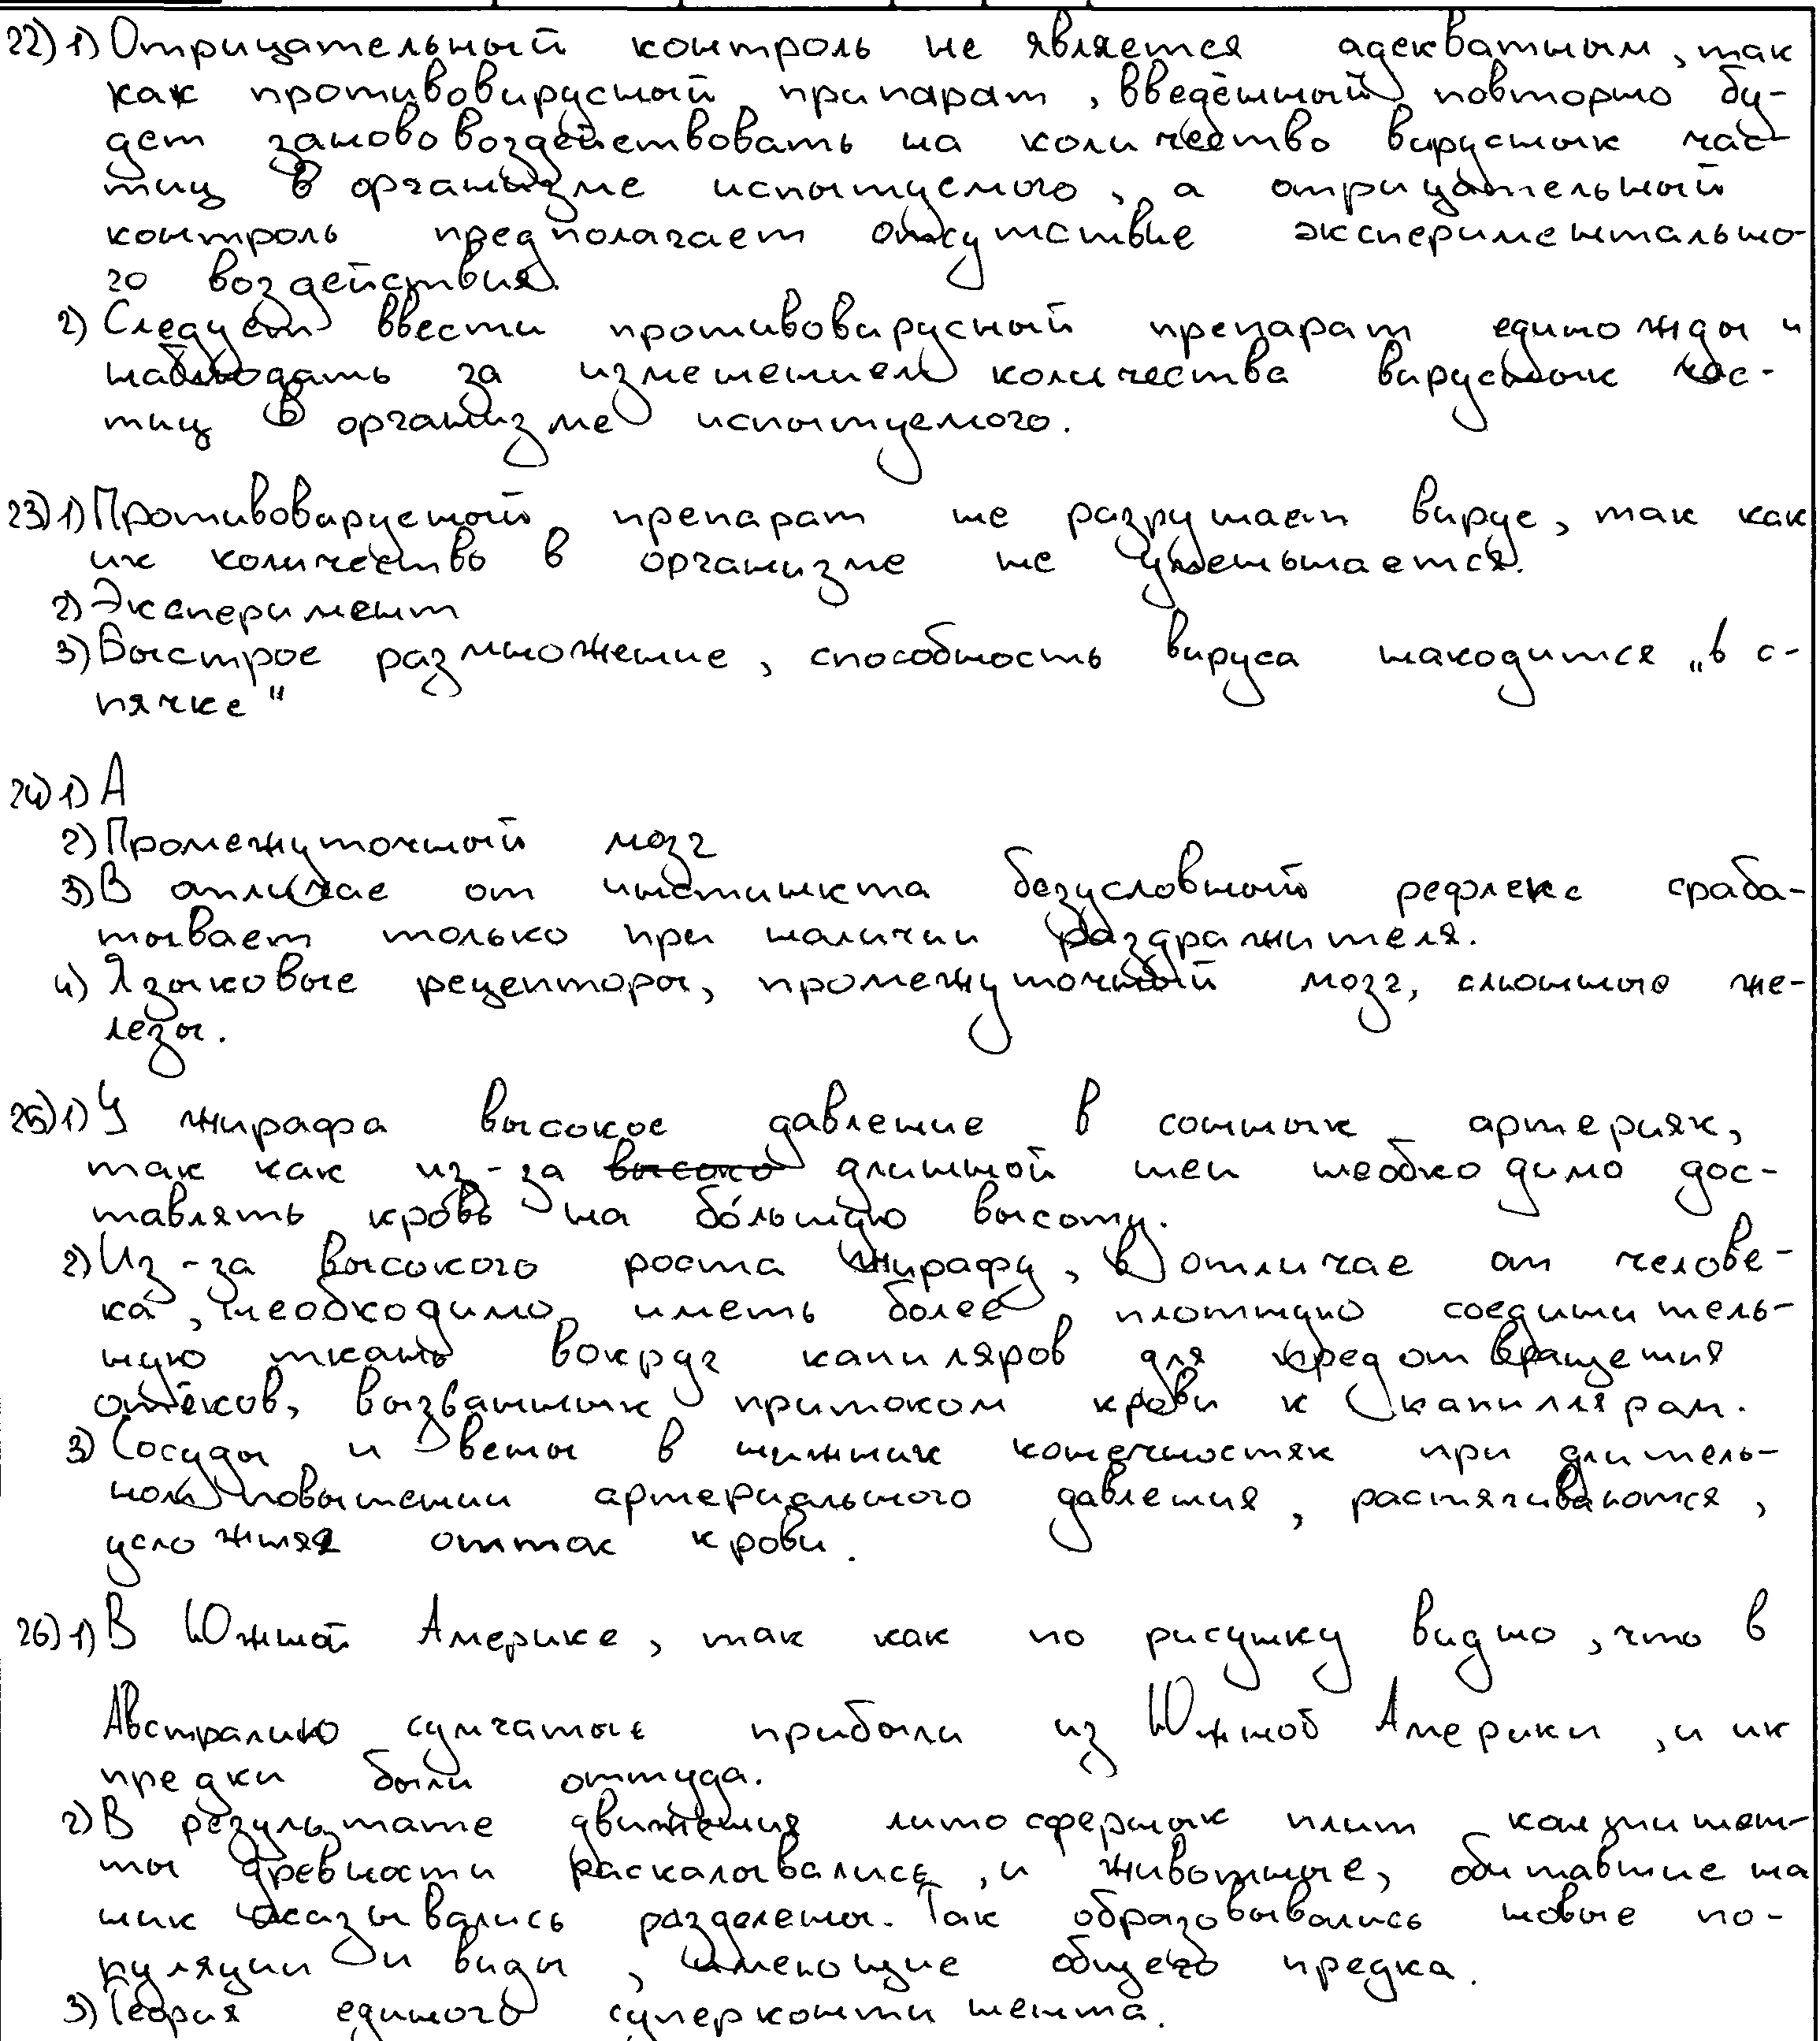 22) 1) Отрицательный контроль не является адекватным, так
как противовирусный припарат, введённый повторно бу-
дет заново воздействовать на количество вирусных час-
тиц в организме испытуемого, а отрицательный
контроль предполагает отсутствие экспериментально-
го воздействия.
2) Следует ввести противовирусный препарат единожды и
наблюдать за изменением количества вирусных час-
тиц в организме испытуемого.
23) 1) Противовирусный препарат не разрушает вирус, так как
их количество в организме не уменьшается.
2) Эксперимент
3) Быстрое размножение, способность вируса находится „в с-
пячке"
24) 1) А
2) Промежуточный мозг
3) В отличае от инстинкта безусловный рефлекс сраба-
тывает только при наличии раздражителя.
4) Языковые рецепторы, промежуточный мозг, слюнные же-
лезы.
25) 1) У жирафа высокое давление в сонных артериях,
так как из-за высоко длинной шеи необходимо дос-
тавлять кровь на бо́льшую высоту.
2) Из-за высокого роста жирафу, в отличае от челове-
ка, необходимо иметь более плотную соедини тель-
ную ткань вокруг капиляров для предотвращения
отёков, вызванных притоком крови к капиллярам.
3) Сосуды и вены в нижних конечностях при длитель-
ном повышении артериального давления, растягиваются,
усложняя отток крови.
26) 1) В Южной Америке, так как по рисунку видно, что в
Австралию сумчатые прибыли из Южной Америки, и их
предки были оттуда.
2) В результате движения литосферных плит континен-
ты древности раскалывались, и животные, обитавшие на
них оказывались разделены. Так образовывались новые по-
пуляции и виды, имеющие общего предка.
3) Теория единого суперконтинента.